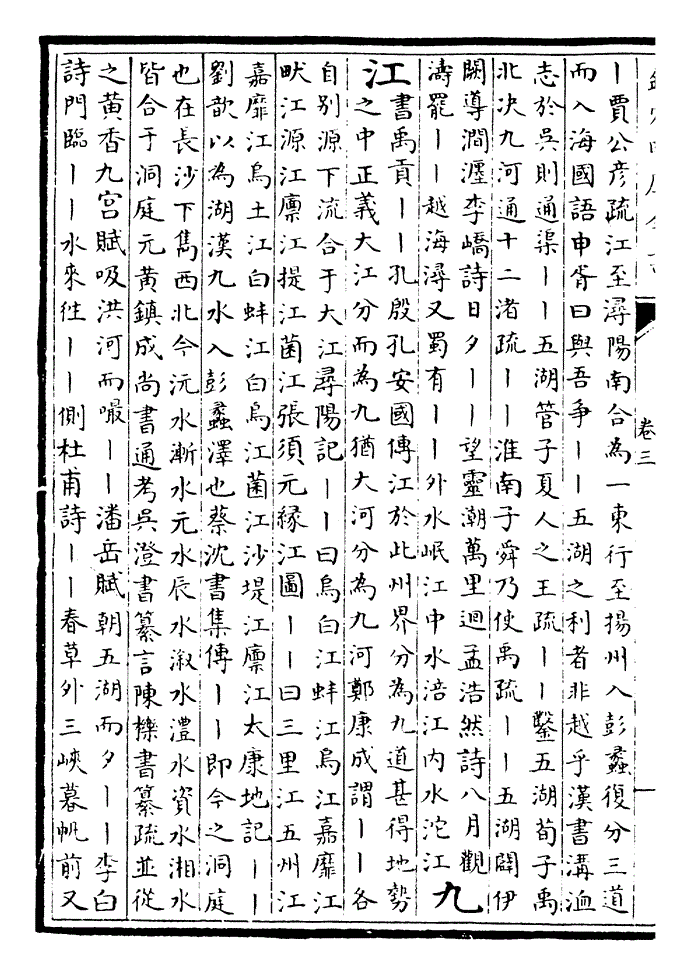 卷三
丨賈公彥疏江至潯陽南合為一東行至揚州入彭蠡復分三道
而入海國語申胥曰與吾爭丨丨五湖之利者非越乎漢書溝洫
志於吳則通渠丨丨五湖管子夏人之王疏丨丨鑿五湖荀子禹
北决九河通十二渚疏丨丨淮南子舜乃使禹疏丨丨五湖闢伊
闕導澗瀍李嶠詩日夕丨丨望靈潮萬里迴孟浩然詩八月觀
濤罷丨丨越海潯又蜀有丨丨外水岷江中水涪江内水沱江
九
江
書禹貢丨丨孔殷孔安國傳江於此州界分為九道甚得地勢
之中正義大江分而為九猶大河分為九河鄭康成謂丨丨各
自别源下流合于大江尋陽記丨丨曰烏白江蚌江烏江嘉靡江
畎江源江廪江提江菌江張須元緣江圖丨丨曰三里江五州江
嘉靡江烏土江白蚌江白烏江菌江沙堤江廪江太康地記丨丨
劉歆以為湖漢九水入彭蠡澤也蔡沈書集傳丨丨即今之洞庭
也在長沙下雋西北今沅水漸水元水辰水溆水澧水資水湘水
皆合于洞庭元黄鎮成尚書通考吳澄書纂言陳櫟書纂疏並從
之黄香九宫賦吸洪河而嘬丨丨潘岳賦朝五湖而夕丨丨李白
詩門臨丨丨水來往丨丨側杜甫詩丨丨春草外三峽暮帆前又